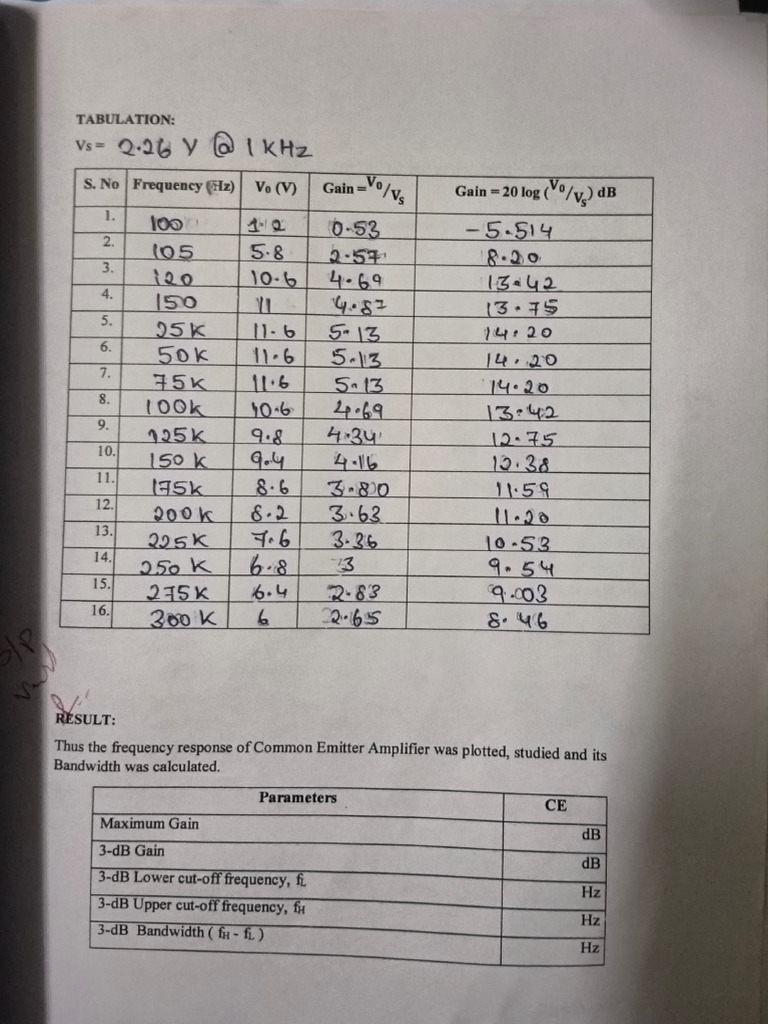 TABULATION:
Vs = 2.26 V @ 1 KHz
S. No Frequency (Hz) Vo (V) Gain = Vo/Vs Gain = 20 log (Vo/Vs) dB
1. 100 1.2 0.53 -5.514
2. 105 5.8 2.57 8.20
3. 120 10.6 4.69 13.42
4. 150 11 4.87 13.75
5. 25K 11.6 5.13 14.20
6. 50K 11.6 5.13 14.20
7. 75K 11.6 5.13 14.20
8. 100K 10.6 4.69 13.42
9. 125K 9.8 4.34 12.75
10. 150K 9.4 4.16 12.38
11. 175K 8.6 3.80 11.59
12. 200K 8.2 3.63 11.20
13. 225K 7.6 3.36 10.53
14. 250K 6.8 3 9.54
15. 275K 6.4 2.83 9.003
16. 300K 6 2.65 8.46
RESULT:
Thus the frequency response of Common Emitter Amplifier was plotted, studied and its
Bandwidth was calculated.
Parameters CE
Maximum Gain dB
3-dB Gain dB
3-dB Lower cut-off frequency, fL Hz
3-dB Upper cut-off frequency, fH Hz
3-dB Bandwidth ( fH - fL ) Hz